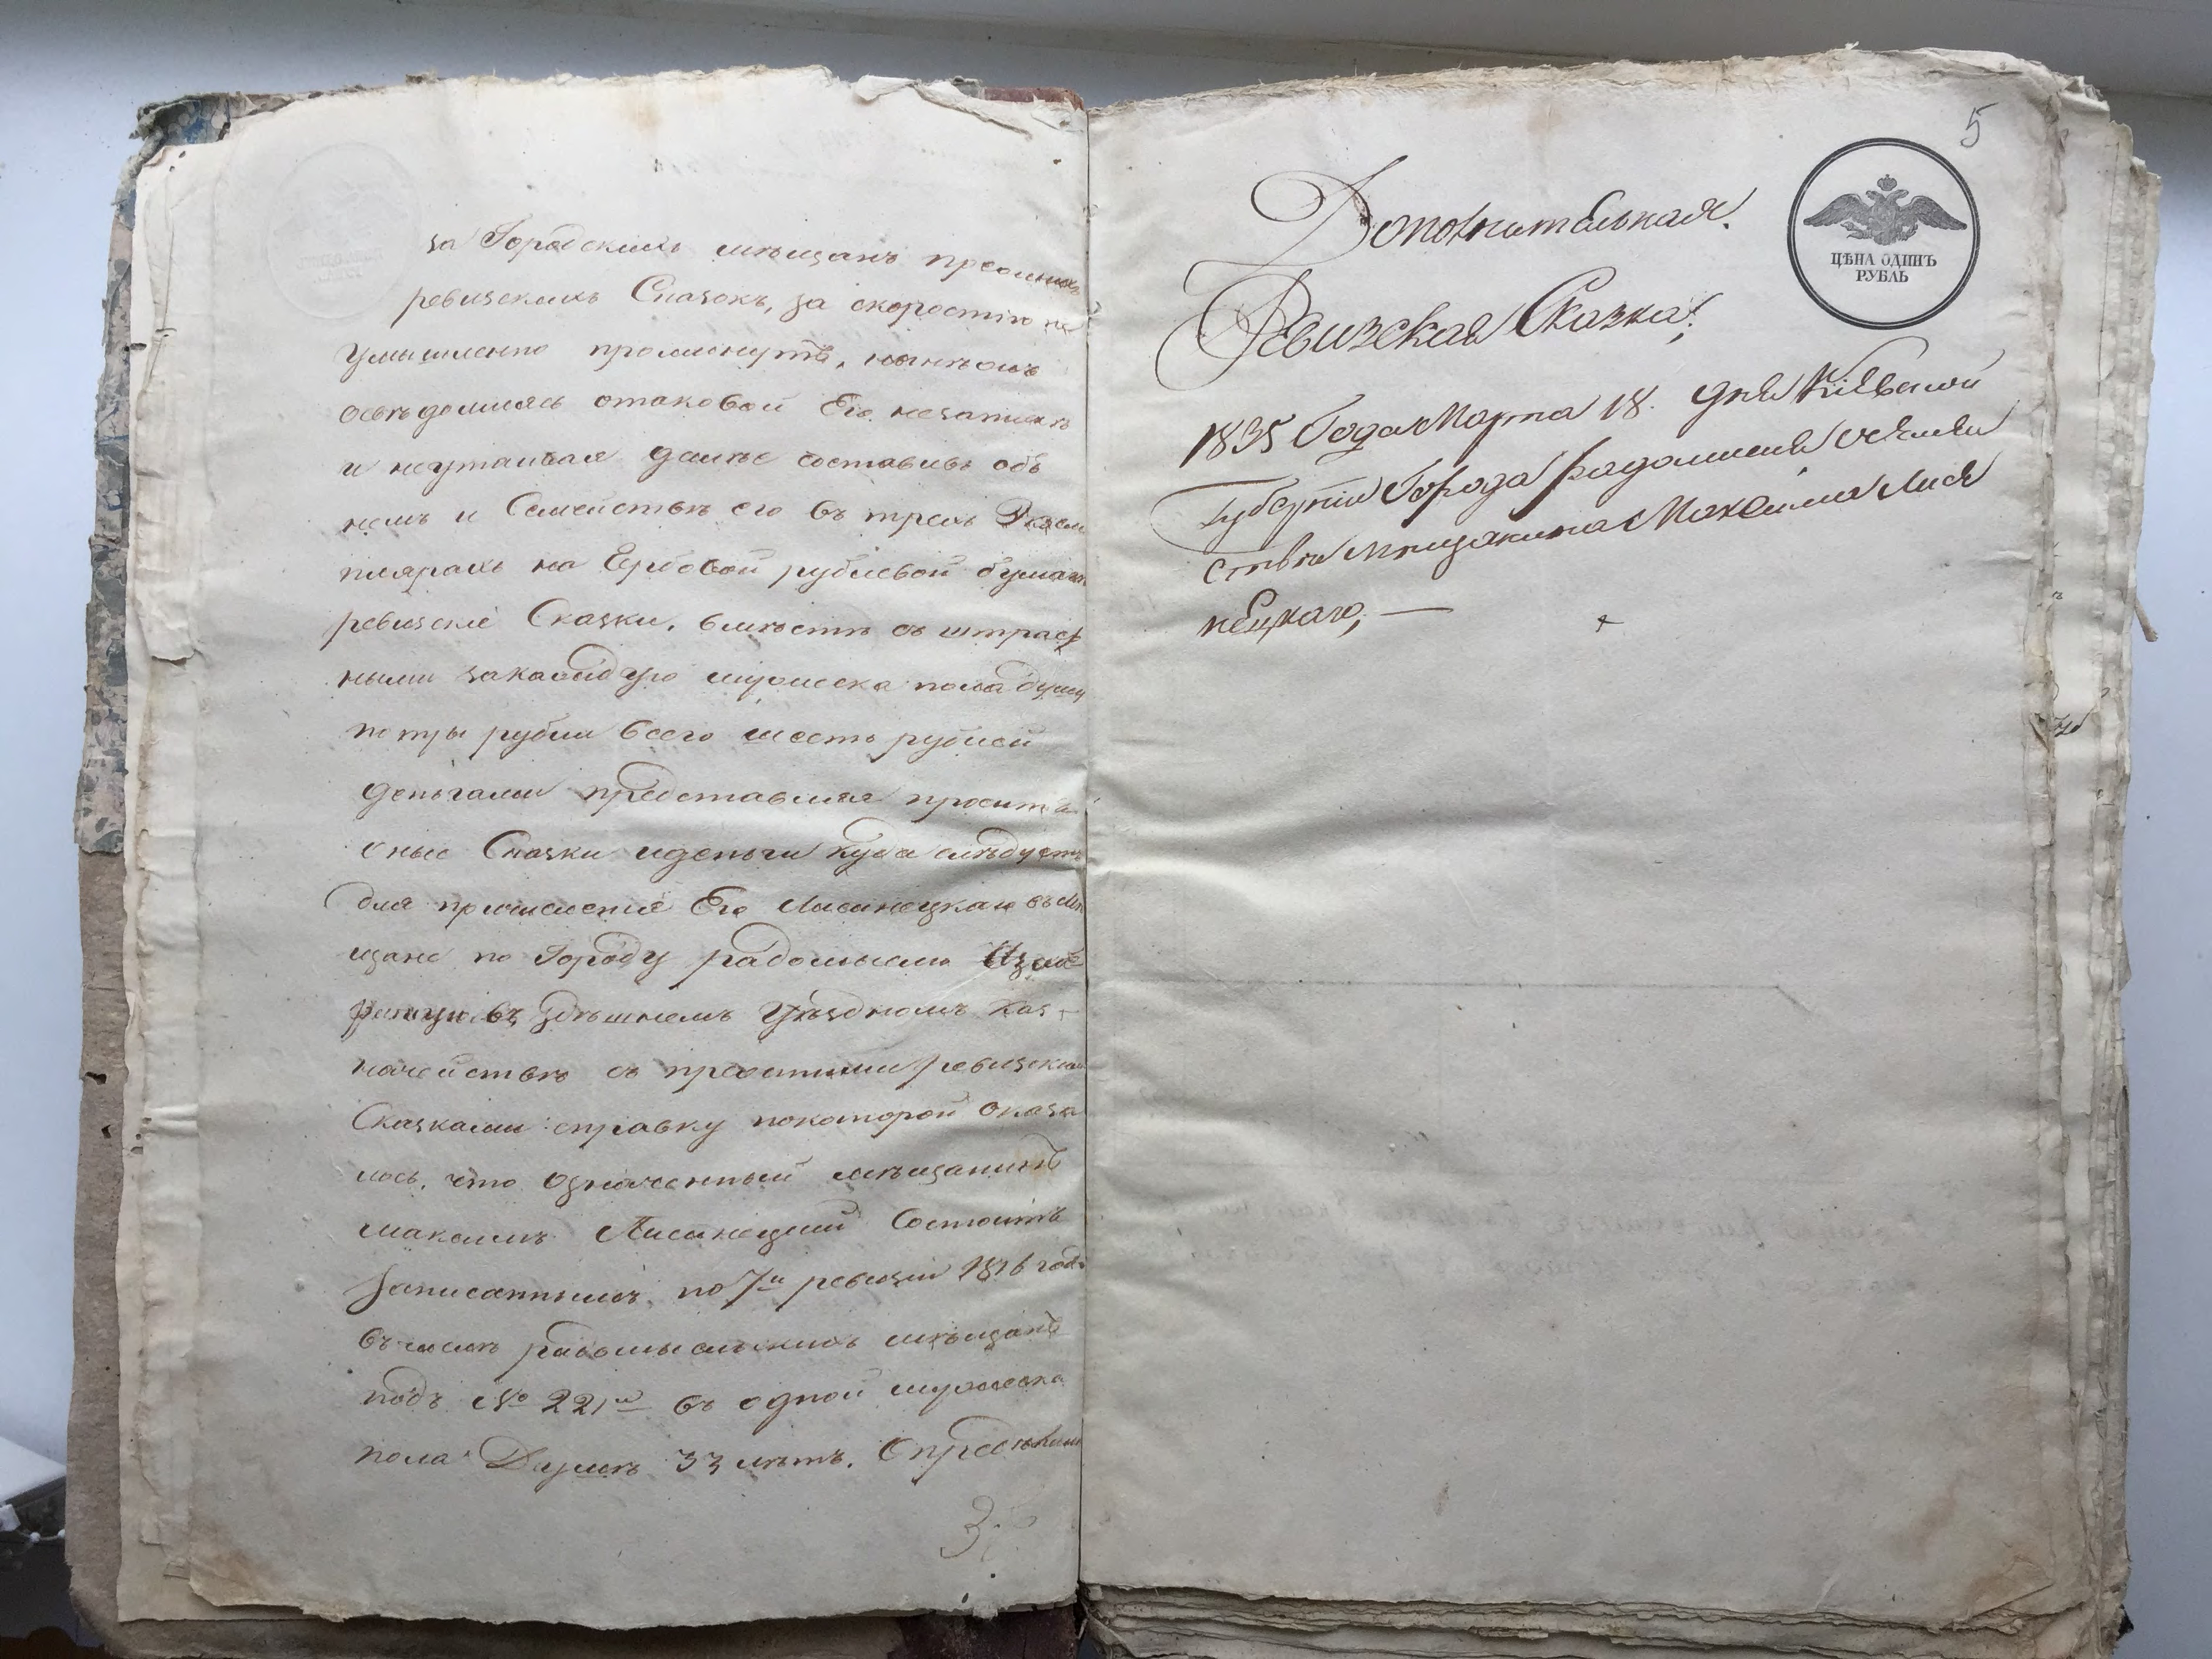 за Городскихъ мѣщанъ прежнихъ
ревизскихъ Сказокъ, за скоростію не
умышленно проминутъ, нынѣ онъ
освѣдомясь отаковой Его незапискѣ
и неутаивая далѣе составивъ объ
немъ и Семействѣ его въ трехъ Экзем
плярахъ на Гербовой рублевой бумагѣ
ревизскіе Сказки, вмѣстѣ съ штраф
ными закаждую мужеска пола душу
по три рубли всего шесть рублей
деньгами представляя проситъ
оные Сказки иденьги куда слѣдуетъ
для причисленія Его Лисинецкаго въ Мѣ
щане по Городу радомыслю
въ здѣшнемъ Уѣздномъ Каз-
начействѣ съ прежними ревизскими
Сказками справку покоторой оказа
лось, что означенный мѣщанинъ
Максимъ Лисинецкій Состоитъ
Записаннымъ по 7й ревизіи 1816 года
въ числѣ радомысльскихъ мѣщанъ
подъ № 221м въ одной мужеска
пола Душѣ 33 лѣтъ. Опредѣлили
3
5
ЦѢНА ОДИНЪ
РУБЛЬ
Дополнительная.
Ревизская Сказка;
1835 Года Марта 18. дня Кіевской
Губерніи Города радомысля осемей
ствѣ Мѣщанина Максима Лиси
нецкаго, —